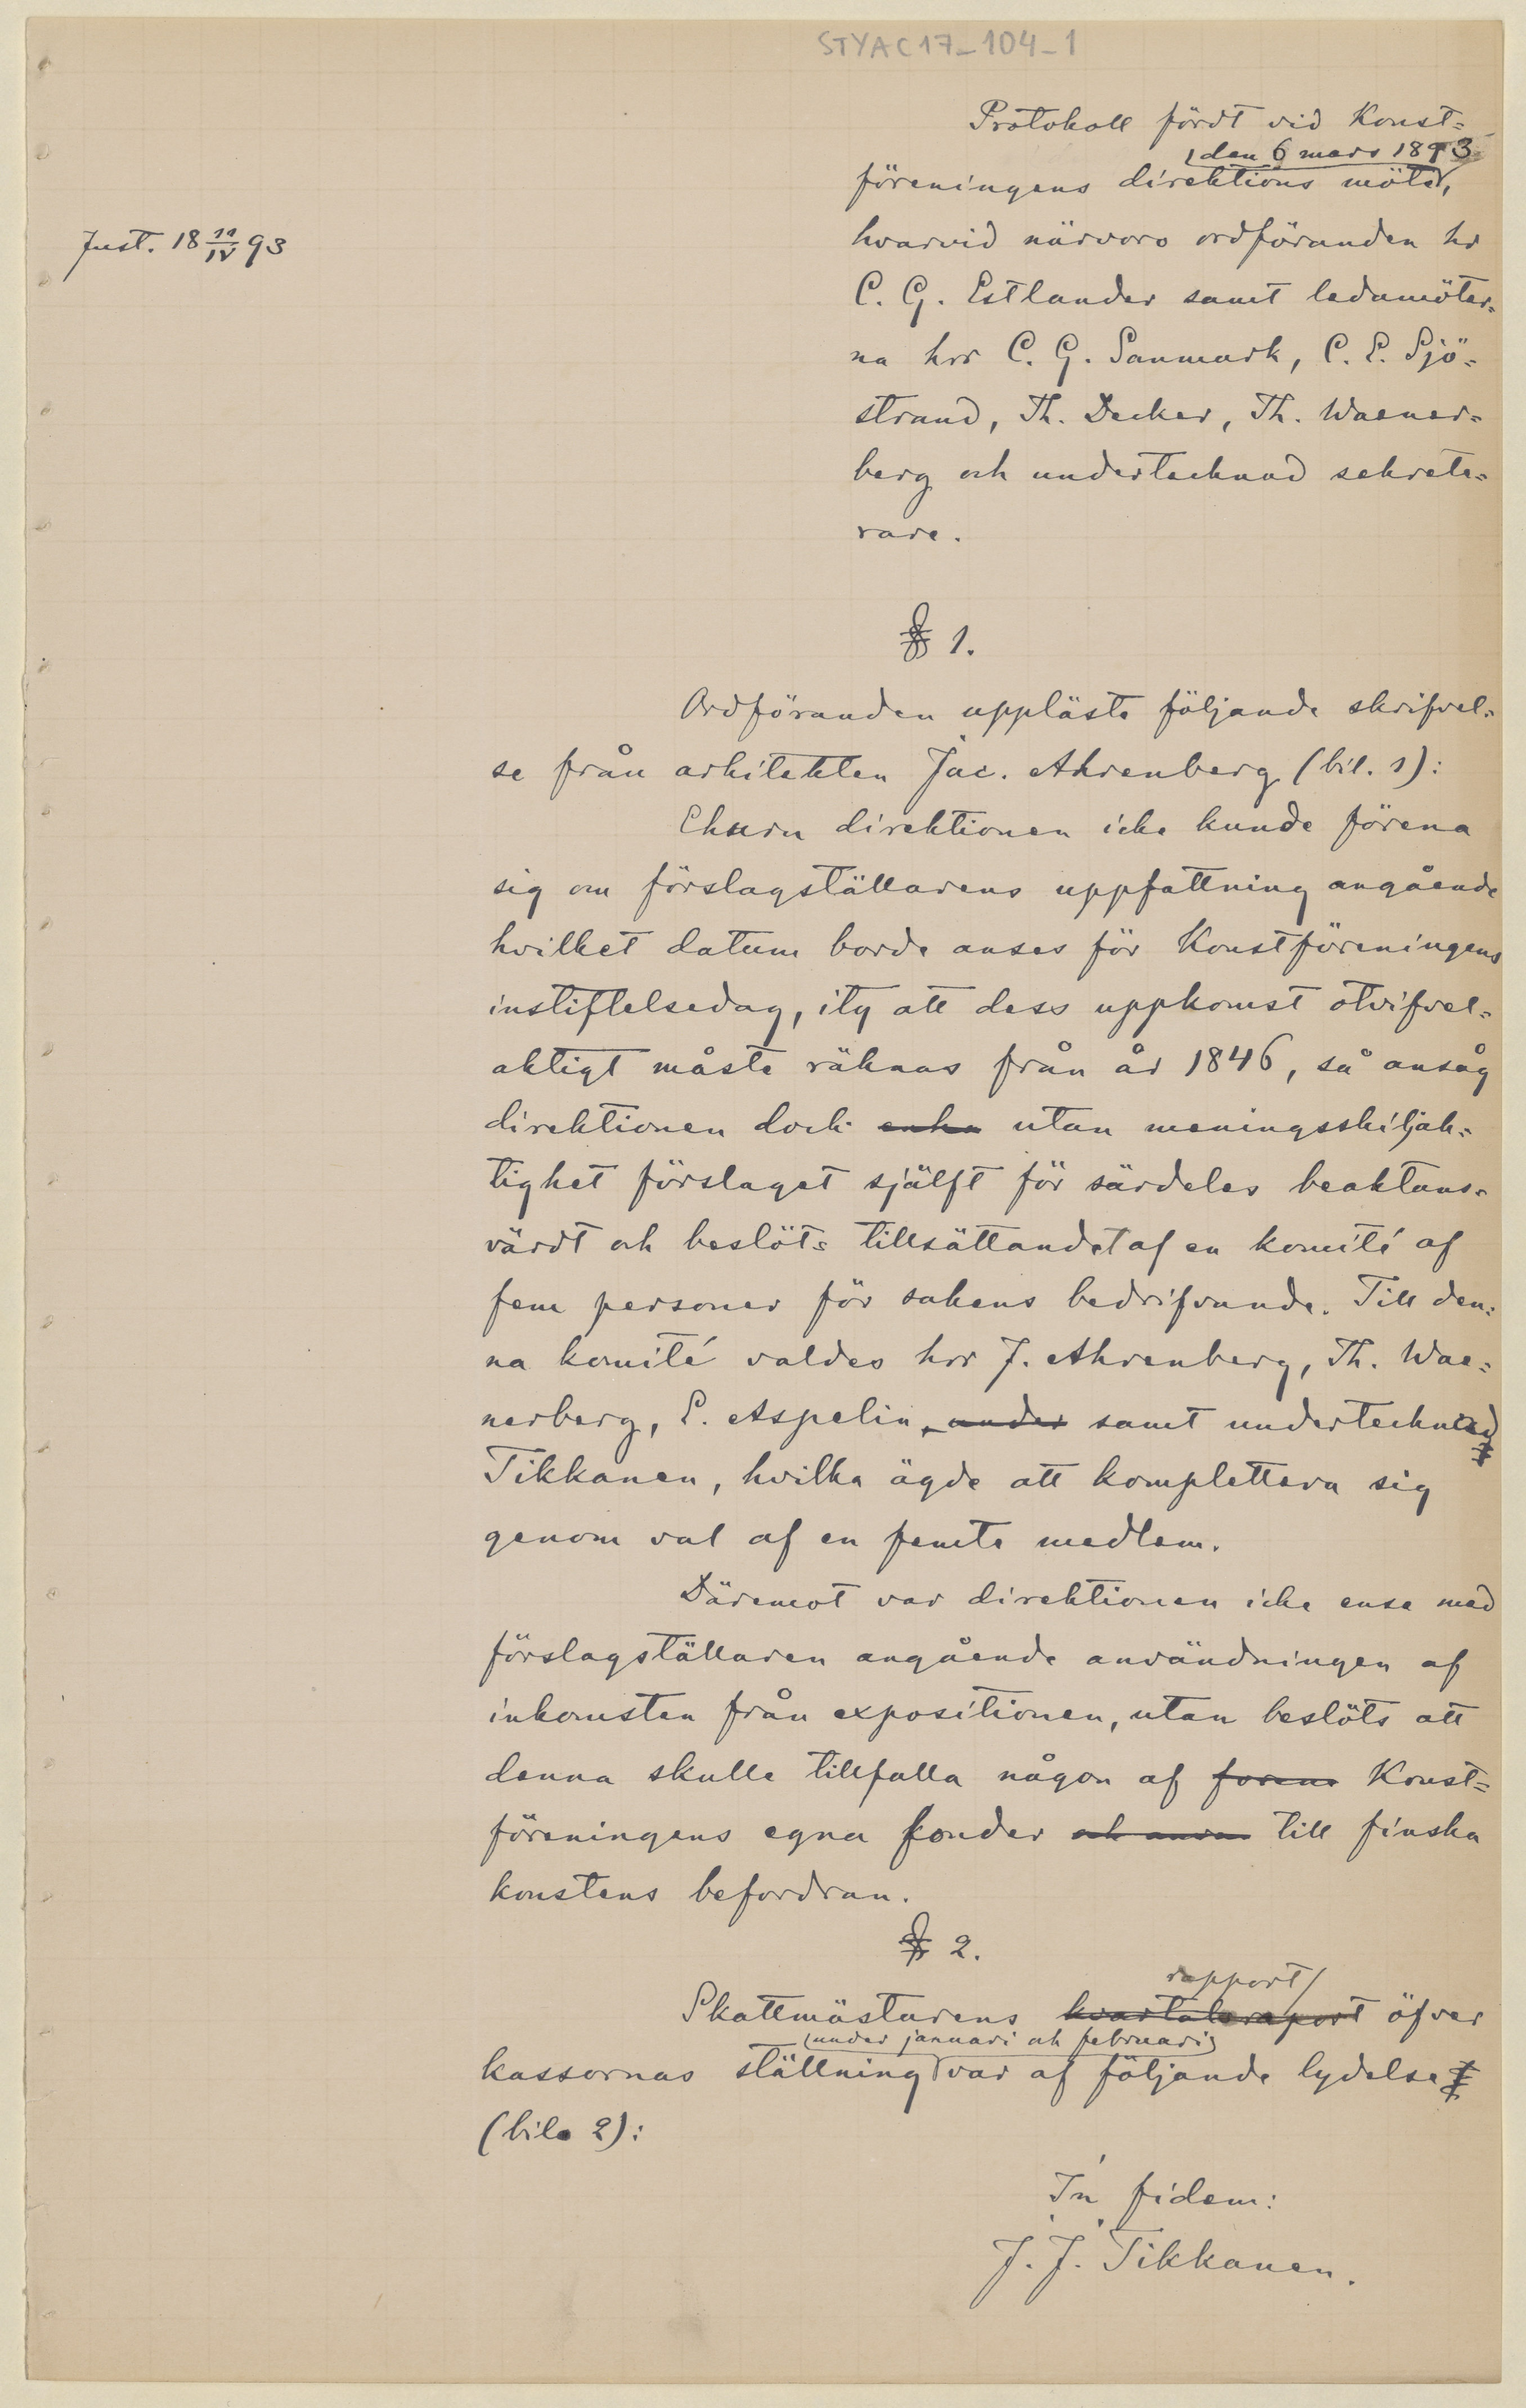 STYA C 17_104_1
Protokoll fördt vid Konst=
den 6 mars 1893
föreningens direktions möte,
hvarvid närvoro ordföranden hr
Just. 18 10/IV 93
C. G. Estlander samt ledamöter=
na hrr C. G. Sanmark, C. E. Sjö=
strand, Th. Decker, Th. Waener=
berg och undertecknad sekrete=
rare.
§ 1.
Ordföranden uppläste följande skrifvel=
se från arkitekten Jac. Ahrenberg (bil. 1):
Ehuru direktionen icke kunde förena
sig om förslagställarens uppfattning angående
hvilket datum borde anses för Konstföreningens
instiftelsedag, ity att dess uppkomst otvifvel=
aktigt måste räknas från år 1846, så ansåg
direktionen dock enha utan meningsskiljak=
tighet förslaget själft för särdeles beaktans=
värdt och beslöts tillsättandet af en komité af
fem personer för sakens bedrifvande. Till den=
na komité valdes hrr J. Ahrenberg, Th. Wae=
nerberg, E. Aspelin, under samt undertecknad
Tikkanen, hvilka ägde att komplettera sig
genom val af en femte medlem.
Däremot var direktionen icke ense med
förslagställaren angående användningen af
inkomsten från expositionen, utan beslöts att
denna skulle tillfalla någon af forene Konst=
föreningens egna fonder och anra till finska
konstens befordran.
§ 2.
rapport
Skattmästarens kvartalsraport öfver
under januari och februari
kassornas ställning var af följande lydelse
(bil. 2):
In fidem:
J. J. Tikkanen.